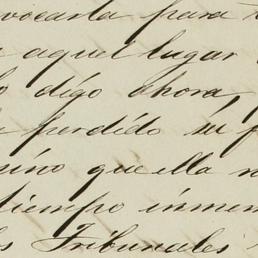 vocarla para
aquel lugar
digo ahora,
perdído su
que ella
tiempo inmem
Tribunales